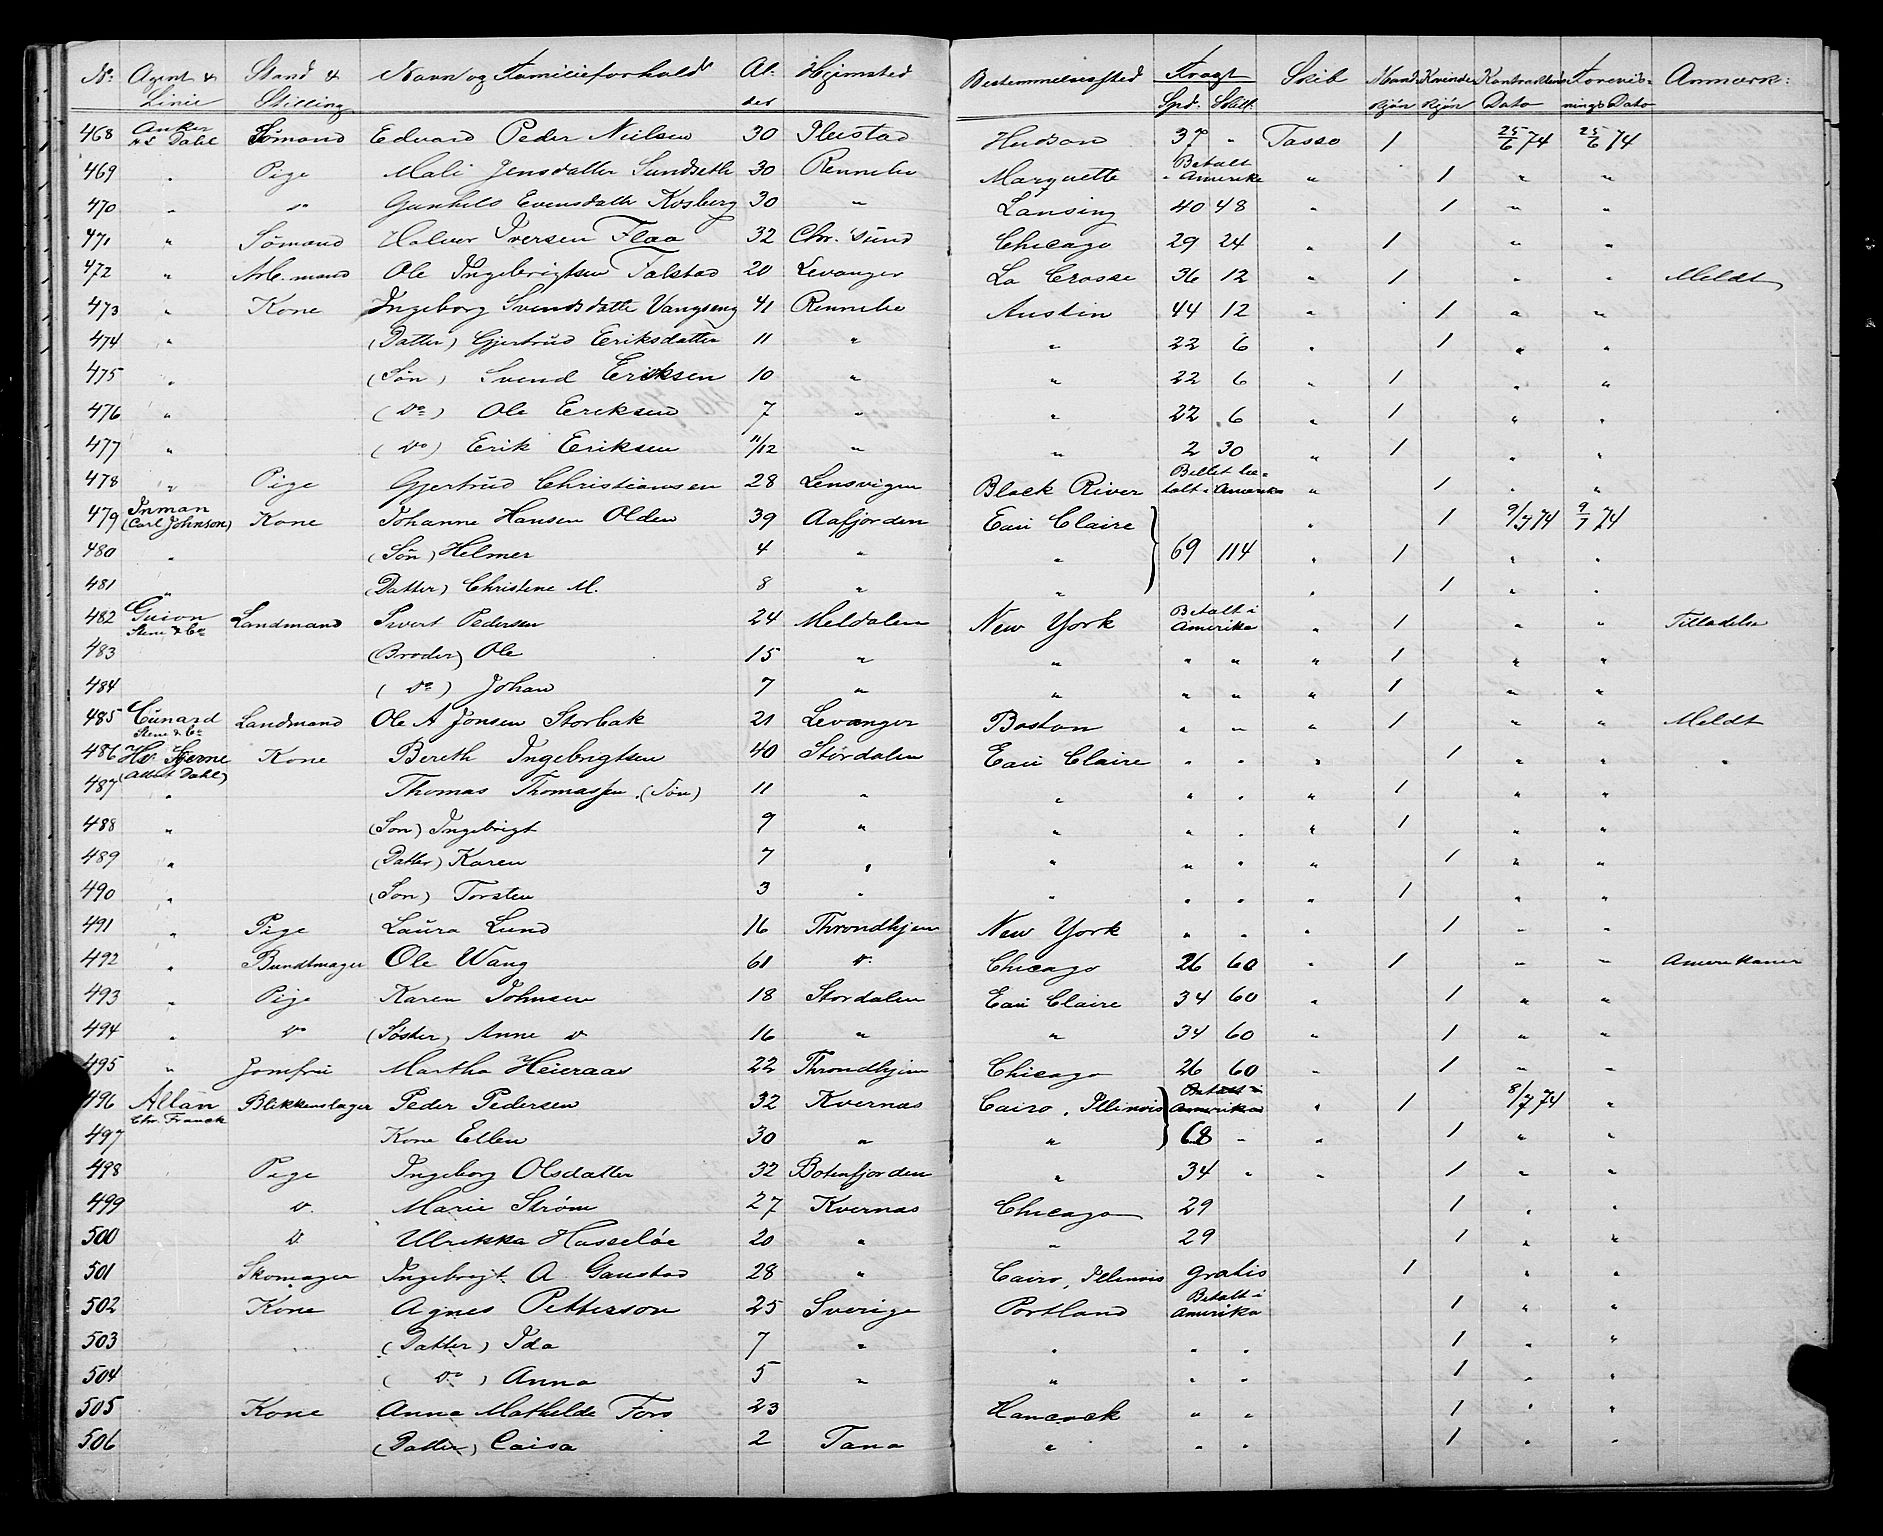 No. Agent & Linie Stand & Stilling Navn og Familieforhold Alder Hjemsted Bestemmelsessted Fragt Spd. Skill. Skib Mandkjøn Kvindekjøn Kontraktens Dato Forevisnings Dato Anmærk:
468 Anker H L Dahl Sömand Edvard Peder Nielsen 30 Hudson 37 " Tasso 1 25/6 74 25/6 74
469 " Pige Mali Jensdatter Sundseth 30 Rennebo Marquette Betalt i Amerika " 1 " "
470 " " Gunhild Evensdatter Kosberg 30 " Lansing 40 48 " 1 " "
471 " Sömand Halvor Iversen Flaa 32 Chr. sund Chicago 29 24 " 1 " "
472 " Arb. mand Ole Ingebrigtsen Falstad 20 Levanger La Crosse 36 12 " 1 " " Meldt
473 " Kone Ingeborg Svendsdatter Vangseng 41 Rennebo Austin 44 12 " 1 " "
474 " (Datter) Gjertrud Eriksdatter 11 " " 22 6 " 1 " "
475 " (Sön) Svend Eriksen 10 " " 22 6 " 1 " "
476 " (Do) Ole Eriksen 7 " " 22 6 " 1 " "
477 " (Do) Erik Eriksen 11/12 " " 2 30 " 1 " "
478 " Pige Gjertrud Christiansen 28 Lensvigen Black River Billet betalt i Amerika " 1 " "
479 Inman (Carl Johnson) Kone Johanne Hansen Olden 39 Aafjorden Eau Claire " 1 9/7 74 9/7 74
480 " (Sön) Helmer 4 " " 69 114 " 1 " "
481 " (Datter) Christine M. 8 " " " 1 " "
482 Guion Stene & Co Landmand Sivert Pedersen 24 Meldalen New York Betalt i Amerika " 1 " " Tilladelse
483 (Broder) Ole 15 " " " " " 1 " "
484 (Do) Johan 7 " " " " " 1 " "
485 Cunard Stene & Co Landmand Ole A Jonsen Storbak 21 Levanger Boston " " " 1 " " Meldt
486 Hvide Stjerne (Albert Dahl) Kone Bereth Ingebrigtsen 40 Stördalen Eau Claire " " " 1 " " "
487 " Thomas Thomassen (Sön) 11 " " " " " 1 " "
488 " (Son) Ingebrigt 9 " " " " " 1 " "
489 " (Datter) Karen 7 " " " " " 1 " "
490 " (Son) Torsten 3 " " " " " 1 " "
491 " Pige Laura Lund 16 Throndhjem New York " " " 1 " "
492 " Bundtmager Ole Wang 61 Do Chicago 26 60 " 1 " " Amerikaner
493 " Pige Karen Johnsen 18 Stordalen Eau Claire 34 60 " 1 " "
494 " Do (Söster) Anne Do 16 " " 34 60 " 1 " "
495 " Jomfru Martha Heieraas 22 Throndhjem Chicago 26 60 " 1 " "
496 Allan Chr. Franck Blikkenslager Peder Pedersen 32 Kvernæs Cairo, Illinois Betalt i Amerika " 1 8/7 74 "
497 Kone Ellen 30 " " 68 " " 1 " "
498 Pige Ingeborg Olsdatter 32 Botenfjorden " 34 " " 1 " "
499 Do Marie Ström 27 Kvernæs Chicago 29 1 " "
500 Do Ulrikka Hasselöe 20 " " 29 1 " "
501 Skomager Ingebrigt A. Gaustad 28 " Cairo, Illinois gratis 1 " "
502 Kone Agnes Petterson 25 Sverige Portland Betalt i Amerika 1 " "
503 (Datter) Ida 7 " " " " 1 " "
504 (Do) Anna 5 " " " " 1 " "
505 Kone Anna Mathilde Fors 23 Hancock " " 1 " "
506 (Datter) Caisa 2 Tana " " " 1 " "